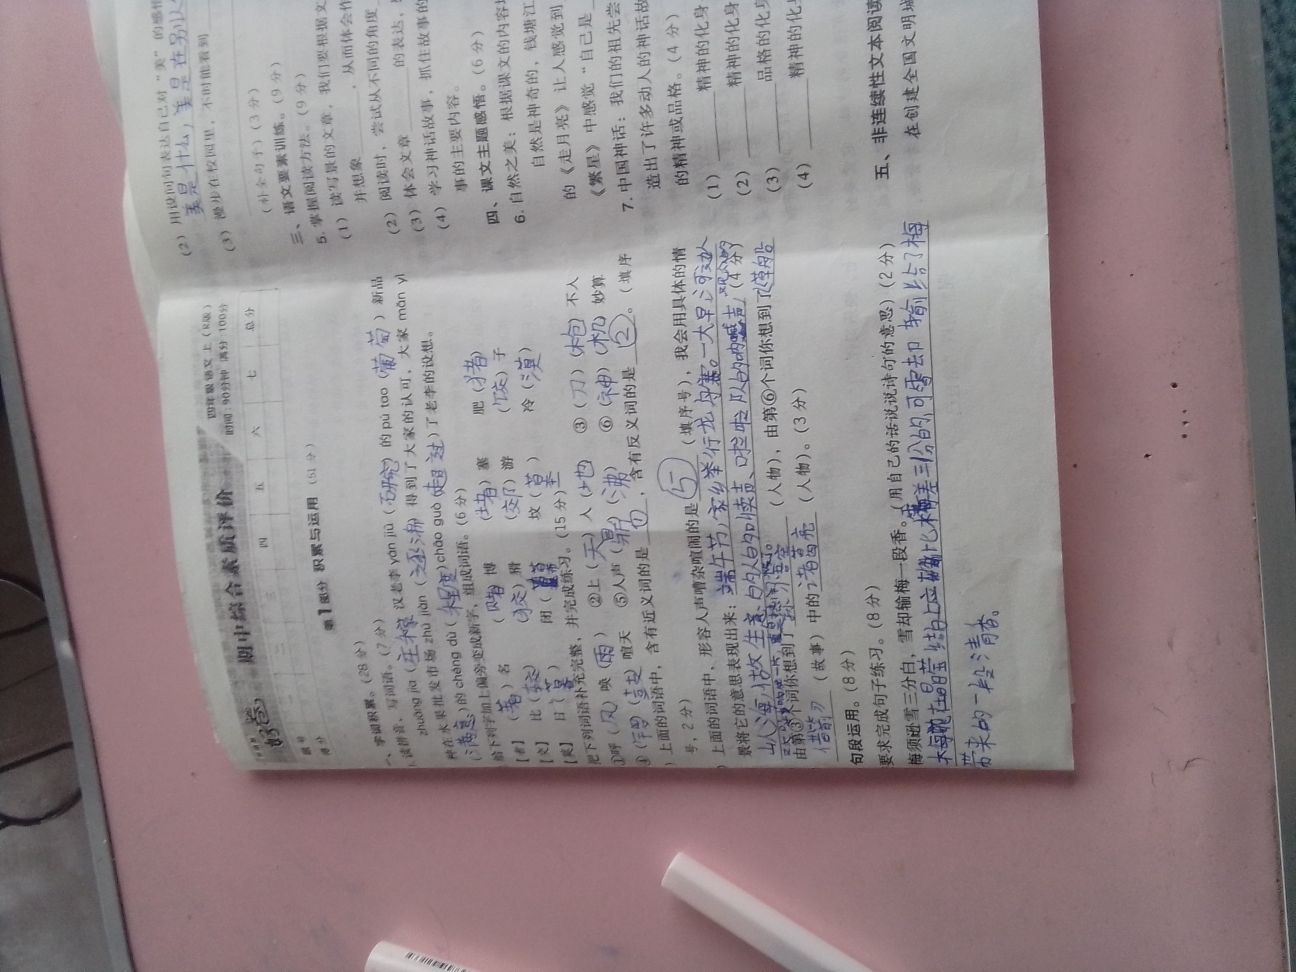 好卷
期中综合素质评价
四年级 语文 上（R版）
时间：90分钟 满分：100分
题号 四 五 六 七 总分
得分
第1部分 积累与运用（51分）
一、字词积累。（28分）
读拼音，写词语。（7分）
zhuāng jia（庄稼）汉老李 yán jiū（研究）的 pú tao（葡萄）新品
种在水果批发市场 zhú jiàn（逐渐）得到了大家的认可，大家 mǎn yì
（满意）的 chéng dù（程度）chāo guò（超过）了老李的设想。
给下列字加上偏旁变成新字，组成词语。（6分）
【者】（著）名 （赌）博 （堵）塞 肥（猪）
【交】比（较） （狡）猾 （郊）游 （饺）子
【莫】日（暮） 闭（幕） 坟（墓） 冷（漠）
把下列词语补充完整，并完成练习。（15分）
①呼（风）唤（雨） ②上（天）入（地） ③（刀）（枪）不入
④（锣）（鼓）喧天 ⑤人声（鼎）（沸） ⑥（神）（机）妙算
上面的词语中，含有近义词的是，含有反义词的是②。（填序
号，2分）
上面的词语中，形容人声嘈杂喧闹的是⑤（填序号），我会用具体的情
景将它的意思表现出来：端午节，家乡举行龙舟赛。一大早，河边人
（4分）
山人海，做生意的人的叫卖声、啦啦队的呐喊声，观众的
由第③个词你想到了孙悟空（人物），由第⑥个词你想到了草船
借箭（故事）中的诸葛亮（人物）。（3分）
句段运用。（8分）
要求完成句子练习。（8分）
梅须逊雪三分白，雪却输梅一段香。（用自己的话说说诗句的意思）（2分）
带来的一段清香。
（2）用设问句表达自己对“美”的感悟
美是什么，美是在别人
（3）漫步在校园里，不时能看到
（补全句子）（3分）
三、语文要素训练。（9分）
5. 掌握阅读方法。（9分）
（1）读写景的文章，我们要根据文
并想象，从而体会作
（2）阅读时，尝试从不同的角度
（3）体会文章的表达，
（4）学习神话故事，抓住故事的
事的主要内容。
四、课文主题感悟。（6分）
6. 自然之美：根据课文的内容填
自然是神奇的，钱塘江
的《走月亮》让人感觉到
《繁星》中感觉“自己是
7. 中国神话：我们的祖先尝
造出了许多动人的神话故
的精神或品格。（4分）
（1）精神的化身
（2）精神的化身
（3）品格的化身
（4）精神的化身
五、非连续性文本阅读
在创建全国文明城